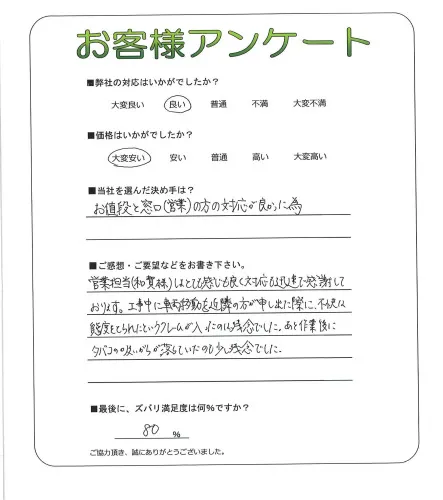 お客様アンケート
■弊社の対応はいかがでしたか？
大変良い 良い 普通 不満 大変不満
■価格はいかがでしたか？
大変安い 安い 普通 高い 大変高い
■当社を選んだ決め手は？
お値段と窓口(営業)の方の対応が良かった為
■ご感想・ご要望などをお書き下さい。
営業担当(和賀様)はとても感じも良く対応も迅速で感謝して
おります。工事中に車両移動を近隣の方が申し出た際に、不快な
態度をとられたというクレームが入ったのは残念でした。あと作業後に
タバコの吸いがらが落ちていたのも少し残念でした。
■最後に、ズバリ満足度は何%ですか？
80 %
ご協力頂き、誠にありがとうございました。